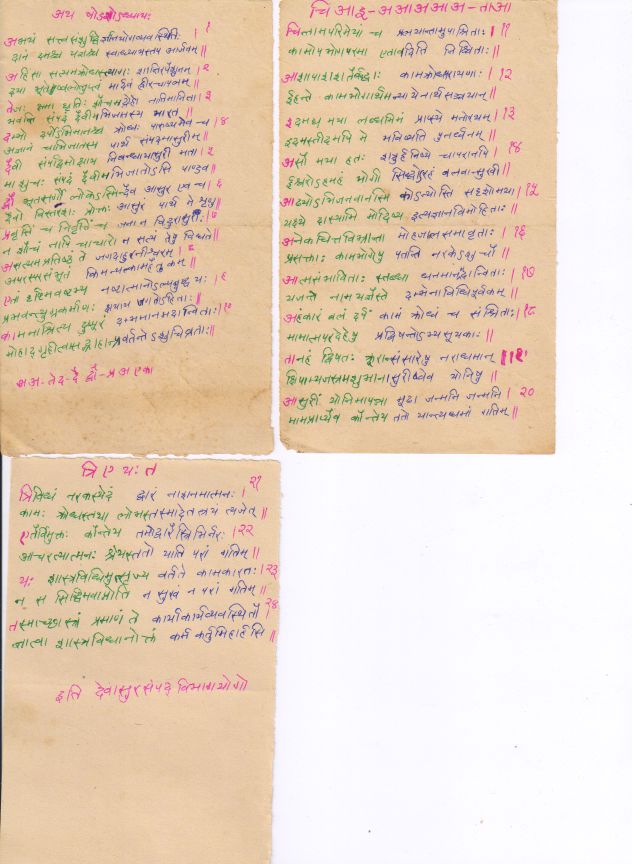 अथ षोडशोऽध्यायः
अभयं सत्त्वसंशुद्धिर्ज्ञानयोगव्यवस्थितिः । १
दानं दमश्च यज्ञश्च स्वाध्यायस्तप आर्जवम् ॥
अहिंसा सत्यमक्रोधस्त्यागः शान्तिरपैशुनम् । २
दया भूतेष्वलोलुप्त्वं मार्दवं ह्रीरचापलम् ॥
तेजः क्षमा धृतिः शौचमद्रोहो नातिमानिता । ३
भवन्ति संपदं दैवीमभिजातस्य भारत ॥
दम्भो दर्पोऽभिमानश्च क्रोधः पारुष्यमेव च । ४
अज्ञानं चाभिजातस्य पार्थ संपदमासुरीम् ॥
दैवी संपद्विमोक्षाय निबन्धायासुरी मता ।
मा शुचः संपदं दैवीमभिजातोऽसि पाण्डव ॥
द्वौ भूतसर्गौ लोकेऽस्मिन्दैव आसुर एव च । ६
दैवो विस्तरशः प्रोक्त आसुरं पार्थ मे शृणु ॥
प्रवृत्तिं च निवृत्तिं च जना न विदुरासुराः । ७
न शौचं नापि चाचारो न सत्यं तेषु विद्यते ॥
असत्यमप्रतिष्ठं ते जगदाहुरनीश्वरम् । ८
अपरस्परसंभूतं किमन्यत्कामहैतुकम् ॥
एतां दृष्टिमवष्टभ्य नष्टात्मानोऽल्पबुद्धयः । ९
प्रभवन्त्युग्रकर्माणः क्षयाय जगतोऽहिताः ॥
काममाश्रित्य दुष्पूरं दम्भमानमदान्विताः । १०
मोहाद्गृहीत्वासद्ग्राहान्प्रवर्तन्तेऽशुचिव्रताः ॥
अअ-तेद-दै द्वौ-प्रअ एका
चि आइ-अआअआअ-ताआ
चिन्तामपरिमेयां च प्रलयान्तामुपाश्रिताः । ११
कामोपभोगपरमा एतावदिति निश्चिताः ॥
आशापाशशतैर्बद्धाः कामक्रोधपरायणाः । १२
ईहन्ते कामभोगार्थमन्यायेनार्थसञ्चयान् ॥
इदमद्य मया लब्धमिमं प्राप्स्ये मनोरथम् । १३
इदमस्तीदमपि मे भविष्यति पुनर्धनम् ॥
असौ मया हतः शत्रुर्हनिष्ये चापरानपि । १४
ईश्वरोऽहमहं भोगी सिद्धोऽहं बलवान्सुखी ॥
आढ्योऽभिजनवानस्मि कोऽन्योस्ति सदृशो मया । १५
यक्ष्ये दास्यामि मोदिष्य इत्यज्ञानविमोहिताः ॥
अनेकचित्तविभ्रान्ता मोहजालसमावृताः । १६
प्रसक्ताः कामभोगेषु पतन्ति नरकेऽशुचौ ॥
आत्मसंभाविताः स्तब्धा धनमानमदान्विताः । १७
यजन्ते नामयज्ञैस्ते दम्भेनाविधिपूर्वकम् ॥
अहंकारं बलं दर्पं कामं क्रोधं च संश्रिताः । १८
मामात्मपरदेहेषु प्रद्विषन्तोऽभ्यसूयकाः ॥
तानहं द्विषतः क्रूरान्संसारेषु नराधमान् । १९
क्षिपाम्यजस्रमशुभानासुरीष्वेव योनिषु ॥
आसुरीं योनिमापन्ना मूढा जन्मनि जन्मनि । २०
मामप्राप्यैव कौन्तेय ततो यान्त्यधमां गतिम् ॥
त्रि ए यः त
त्रिविधं नरकस्येदं द्वारं नाशनमात्मनः । २१
कामः क्रोधस्तथा लोभस्तस्मादेतत्त्रयं त्यजेत् ॥
एतैर्विमुक्तः कौन्तेय तमोद्वारैस्त्रिभिर्नरः । २२
आचरत्यात्मनः श्रेयस्ततो याति परां गतिम् ॥
यः शास्त्रविधिमुत्सृज्य वर्तते कामकारतः । २३
न स सिद्धिमवाप्नोति न सुखं न परां गतिम् ॥
तस्माच्छास्त्रं प्रमाणं ते कार्याकार्यव्यवस्थितौ । २४
ज्ञात्वा शास्त्रविधानोक्तं कर्म कर्तुमिहार्हसि ॥
इति देवासुरसंपद्विभागयोगो